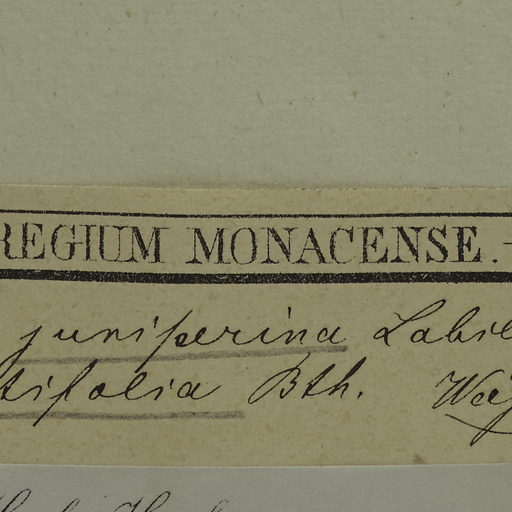 REGIUM MONACENSE.
juniperina Labil
tifolia Bth.